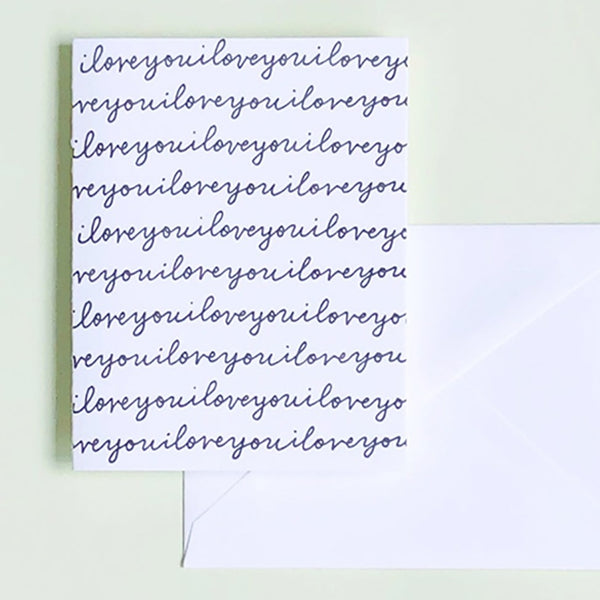 iloveyouiloveyouiloveyo
veyouiloveyouiloveyou
iloveyouiloveyouiloveyo
veyouiloveyouiloveyou
iloveyouiloveyouiloveyo
veyouiloveyouiloveyou
iloveyouiloveyouiloveyo
veyouiloveyouiloveyou
iloveyouiloveyouiloveyo
veyouiloveyouiloveyou